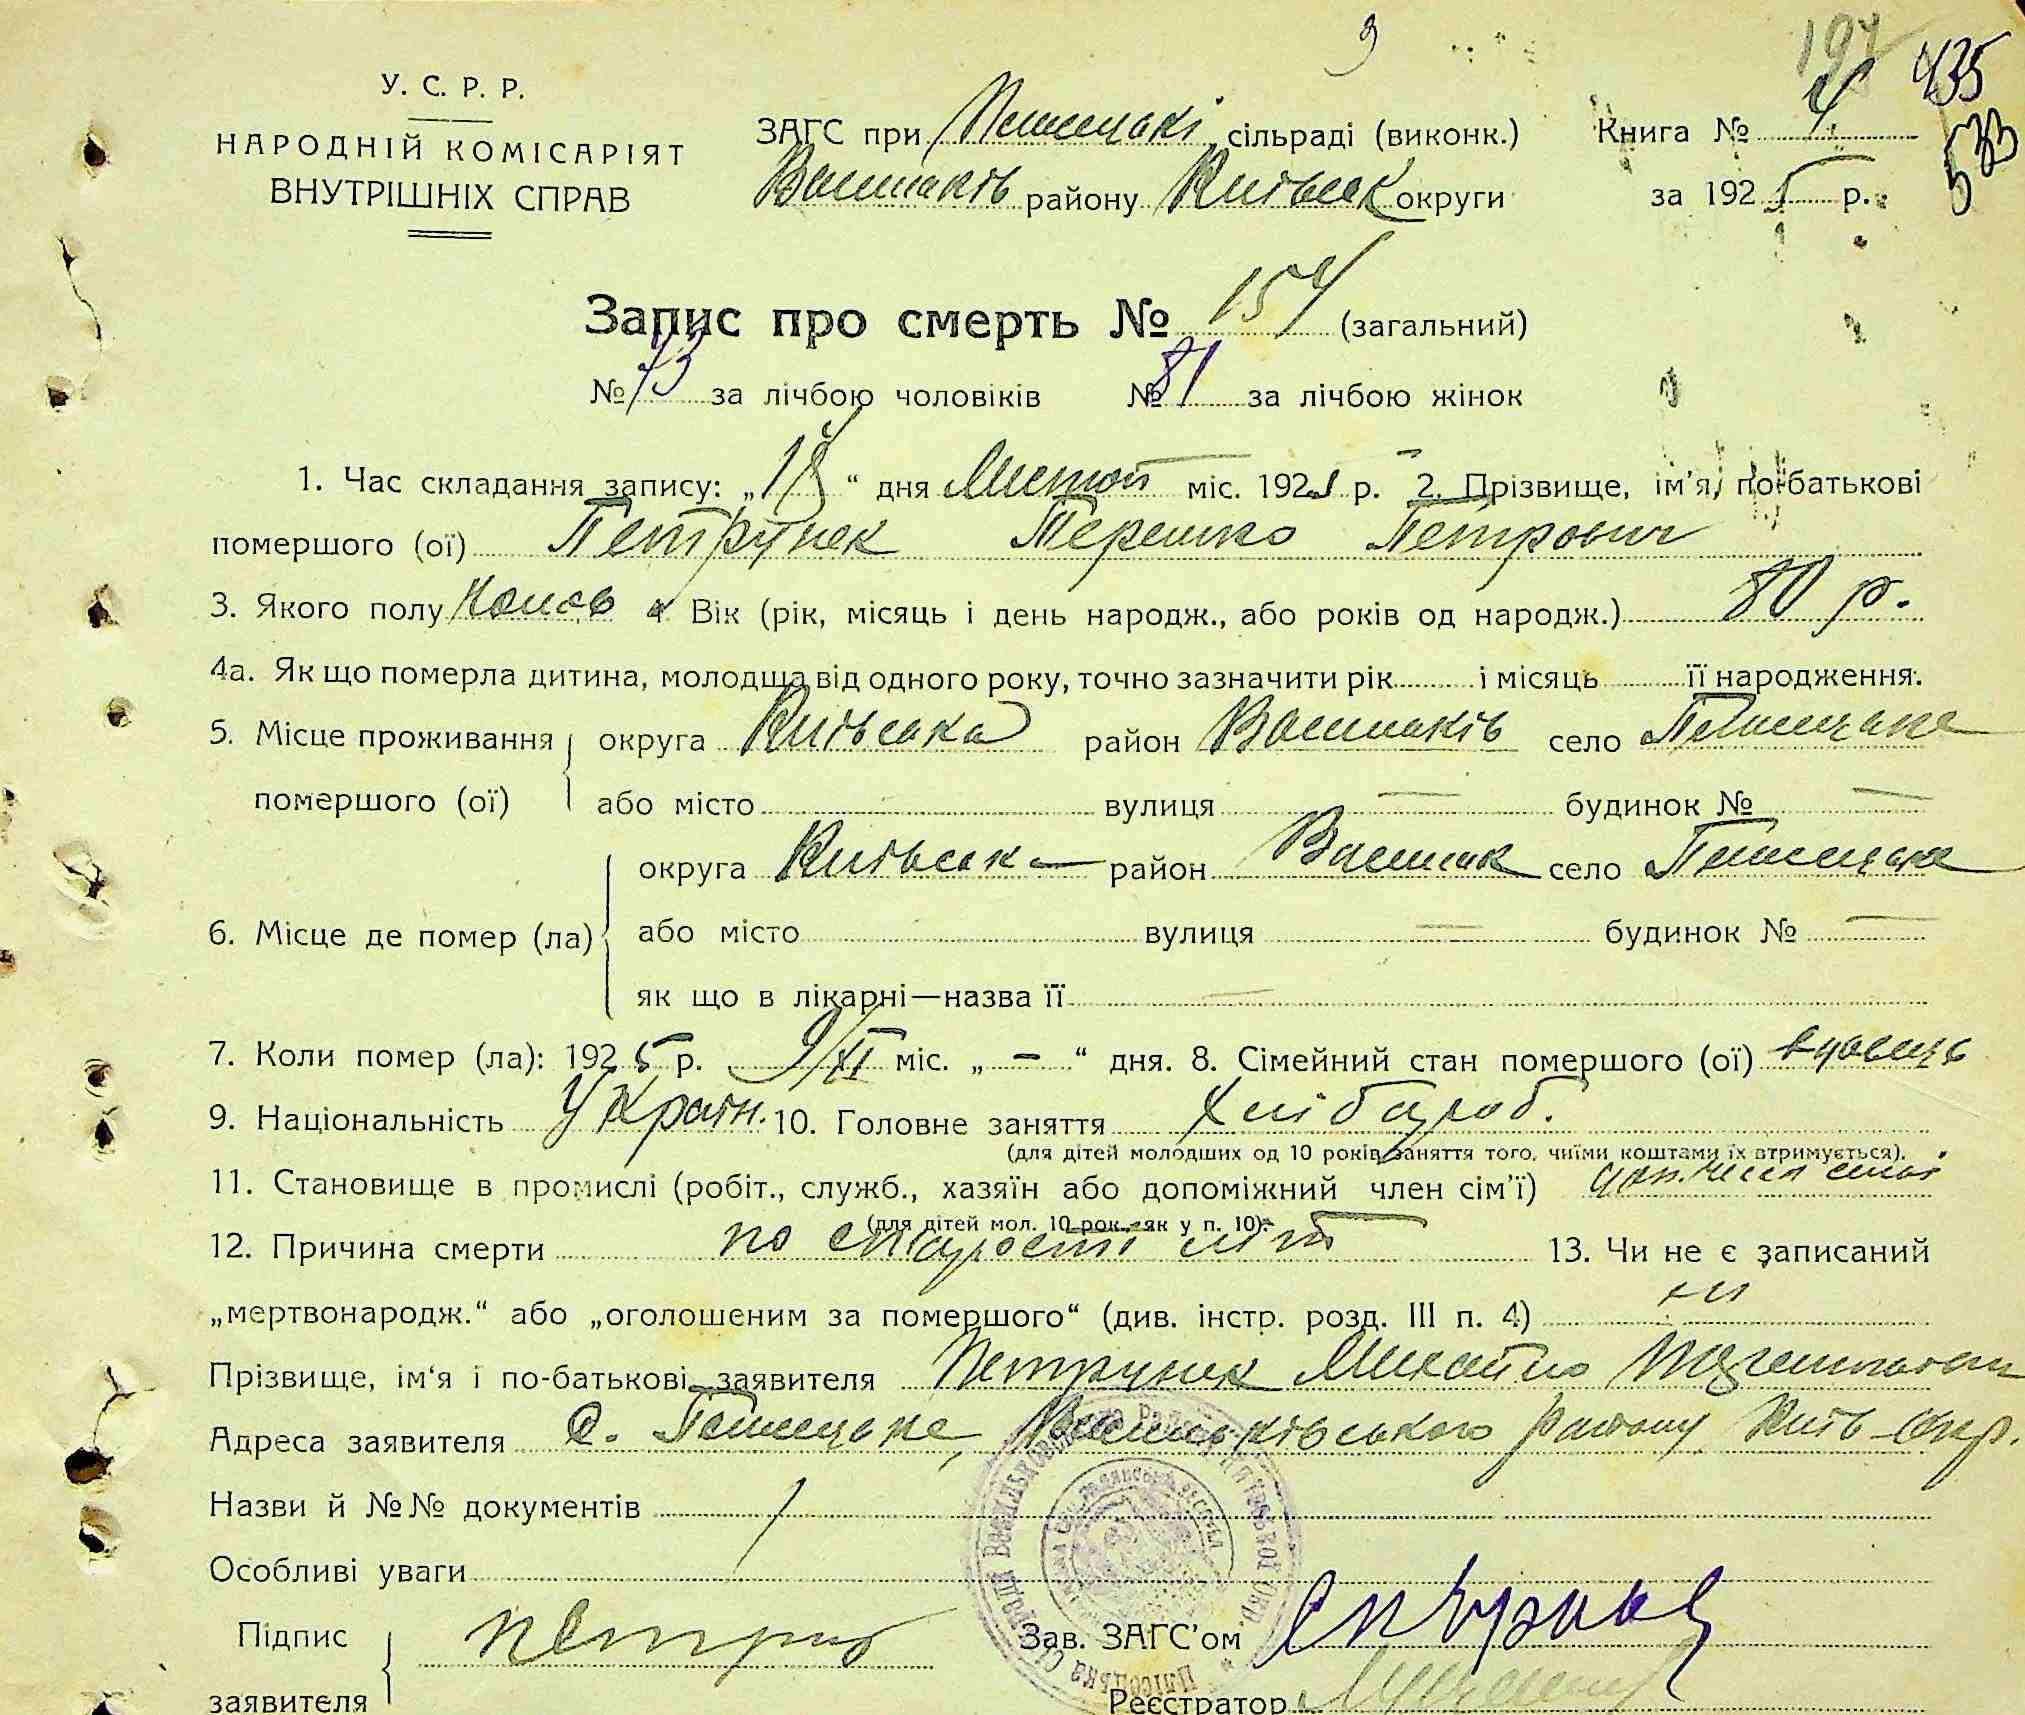 9 197 435
У. С. Р. Р.
НАРОДНІЙ КОМІСАРІЯТ
ВНУТРІШНІХ СПРАВ
ЗАГС при Плисецькі сільраді (виконк.) Книга № 4 533
Васильків району Київськ округи за 1925 р.
Запис про смерть № 154 (загальний)
№ 73 за лічбою чоловіків № 81 за лічбою жінок
1. Час складання запису: „18“ дня Листоп міс. 1925 р. 2. Прізвище, ім'я, по-батькові
помершого (ої) Петрунек Терешко Петрович
3. Якого полу 4. Вік (рік, місяць і день народж., або років од народж.) 80 р.
4а. Як що померла дитина, молодща від одного року, точно зазначити рік і місяць її народження.
5. Місце проживання округа Київська район Васильків село Плисецьке
помершого (ої) або місто вулиця — будинок № —
округа Київська район Васильк село Плисецьке
6. Місце де помер (ла) або місто вулиця — будинок № —
як що в лікарні—назва її —
7. Коли помер (ла): 1925 р. 9/XI міс. „ – “ дня. 8. Сімейний стан помершого (ої) вдовець
9. Національність Україн. 10. Головне заняття Хлібороб.
(для дітей молодших од 10 років заняття того, чиїми коштами їх втримується).
11. Становище в промислі (робіт., служб., хазяїн або допоміжний член сім'ї) доп. член сімї
(для дітей мол. 10 рок. як у п. 10).
12. Причина смерти по старости літ 13. Чи не є записаний
„мертвонародж.“ або „оголошеним за помершого“ (див. інстр. розд. III п. 4) ні
Прізвище, ім'я і по-батькові заявителя Петрунек Михайло
Адреса заявителя С. Плисецьке, Васильківського району Київ-окр.
Назви й №№ документів
Особливі уваги
Підпис Петрун Зав. ЗАГС'ом
заявителя Реєстратор